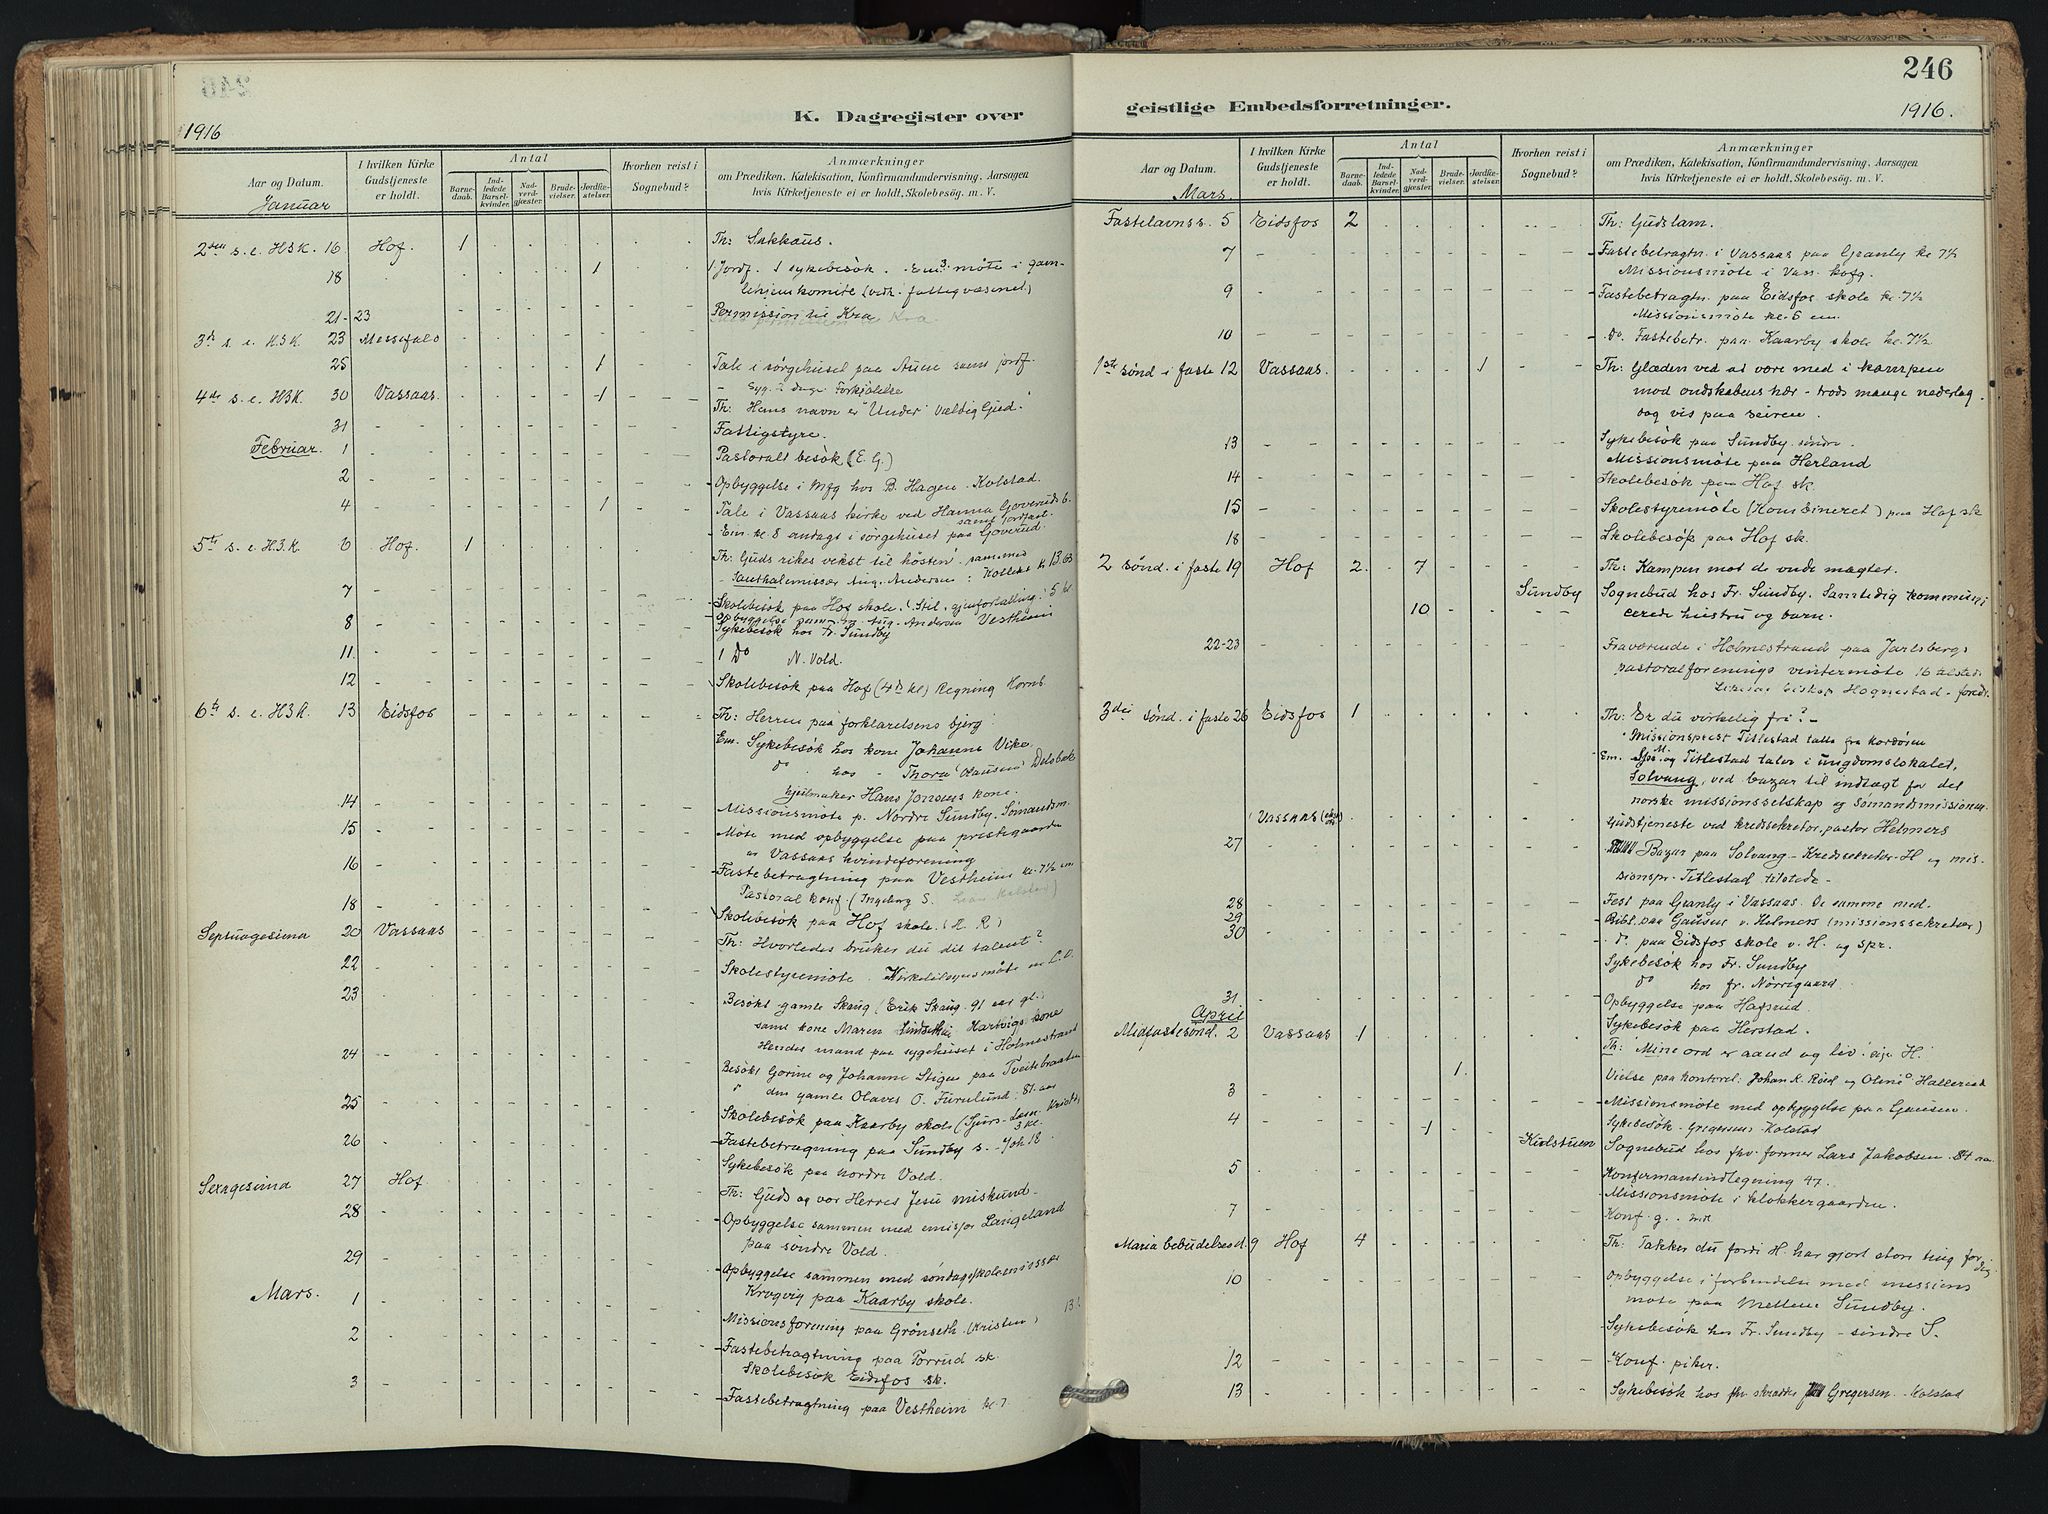 246
1916
1916.
K. Dagregister over
geistlige Embedsforretninger.
Aar og Datum.
I hvilken Kirke Gudstjeneste er holdt.
Antal
Barnedaab.
Indledede Barselkvinder.
Nadverdgjæster.
Brudevielser.
Jordfæstelser.
Hvorhen reist i Sognebud?
Anmærkninger
om Prædiken, Katekisation, Konfirmandundervisning, Aarsagen
hvis Kirketjeneste ei er holdt, Skolebesög. m. V.
Januar
2den s. e. H3K. 16 Hof. 1 Th: Sakkæus.
18 1 1 Jordf. 1 sykebesök. Em 3. möte i gam-
lehjemkomite (vedk. fattigvæsenet)
21-23 Permission til Kra
3d s. e. H3K. 23 Messefald
25 1 Tale i sörgehuset paa Auen samt jordf.
Syg i dage Forkjölelse
4de s. e. H3K. 30 Vassaas 1 Th: Hans navn er "Under" Vældig Gud.
31 Fattigstyre.
Februar. 1 Pastoralt besök (E. G.)
2 Opbyggelse i Mfg hos B. Hagen Kolstad.
4 1 Tale i Vassaas kirke ved Hanna Goveruds b.
samt jordfæst.
Em. kl. 8 andagt i sörgehuset paa Goverud.
5te s. e. H.3.K. 6 Hof 1 Th: Guds rikes vekst til hösten sammen
Santhalmissær Aug. Andersen: Kollekt k 13.63
7 Skolebesök paa Hof skole. (Stil. gjenfortælling. 5 kl
Opbyggelse Aug. Andersen Vestheim
8 Sykebesök hos Fr. Sundby
11. 1 Do N. Vold.
12 Skolebesök paa Hof (4d kl) Regning Hornb.
6te s. e. H3K. 13 Eidsfos Th: Herren paa forklarelsens bjerg
Em. Sykebesök hos kone Johanne Vike.
do hos - Thora Clausen Delsbæk
hjulmaker Hans Jonsens kone.
14 Missionsmöte p. Nordre Sundby. Sömandsm.
15 Möte med opbyggelse paa prestegaarden
av Vassaas kvindeforening
16 Fastebetragtning paa Vestheim kl. 7½ em
Pastoral konf. (Ingeborg S.
18 Skolebesök paa Hof skole. (H. R)
Septuagesima 20 Vassaas Th: Hvorledes bruker du dit talent?
22 Skolestyremöte.
23 Besökt gamle Skaug (Erik Skaug 91 aar gl.)
samt kone Maren Hartvigs kone
Hendes mand paa sygehuset i Holmestrand
24 Besökt Gorine og Johanne Stigen paa Tveitebraaten
den gamle Olaves O. Furulund. 81 aar
25 Skolebesök paa Kaarby skole
26 Fastebetragtning paa Sundby s. - Joh 18.
Sykebesök paa nordre Vold.
Sexagesima 27 Hof Th: Guds og vor Herres Jesu miskund.
28 Opbyggelse sammen med emissær Langeland
paa söndre Vold.
29 Opbyggelse sammen med söndagsskoleemissær
Krogvig paa Kaarby skole.
Mars. 1 Missionsforening paa Grönseth (Kristen)
2 Fastebetragtning paa Torrud sk.
Skolebesök Eidsfos sk.
3 Fastebetragtning paa Vestheim kl. 7
Aar og Datum.
I hvilken Kirke Gudstjeneste er holdt.
Antal
Barnedaab.
Indledede Barselkvinder.
Nadverdgjæster.
Brudevielser.
Jordfæstelser.
Hvorhen reist i Sognebud?
Anmærkninger
om Prædiken, Katekisation, Konfirmandundervisning, Aarsagen
hvis Kirketjeneste ei er holdt, Skolebesög. m. V.
Mars.
Fastelavnss. 5 Eidsfos 2 Th: Guds lam.
7 Fastebetragtn. i Vassaas paa Granly kl 7½
Missionsmöte i Vass. kofg.
9 Fastebetragtn. paa Eidsfos skole kl. 7½
Missionsmöte kl. 5 em.
10 Do. Fastebetr. paa Kaarby skole kl. 7½
1ste sönd i faste 12 Vassaas. 1 Th: Glæden ved at være med i kampen
mod ondskabens hær - trods mange nederlag
dog vis paa seiren.
13 Sykebesök paa Sundby söndre.
Missionsmöte paa Herland
14 Skolebesök paa Hof sk.
15 Skolestyremöte (Kombineret) paa Hof sk
18 Skolebesök paa Hof sk.
2 sönd. i faste 19 Hof 2. 7 Th: Kampen mot de onde magter.
10 Sundby Sognebud hos Fr. Sundby. Samtidig kommuni-
cerede hustru og barn.
22-23 Fraværende i Holmestrand paa Jarlsbergs
pastoralforenings vintermöte 16 tilstede
biskop Hognestad - foredr.
3die sönd. i faste 26 Eidsfos 1 Th: Er du virkelig fri? -
Missionsprest Titlestad talte fra kordören
Em. og Titlestad taler i ungdomslokalet,
Solvang, ved bazar til indtægt for det
norske missionsselskap og sömandsmissionen.
Vassaas Gudstjeneste ved kredssekretær, pastor Helmers
27 Bazar paa Solvang - Kredssekretær H og mis-
sionspr. Titlestad tilstede -
28 Fest paa Granly i Vassaas. De samme med.
29 Bibl. paa Gausen v. Helmers (missionssekretær)
30 do. paa Eidsfos skole v. H. og spr.
Sykebesök hos Fr. Sundby
do hos fr. Nörregaard.
31 Opbyggelse paa Hafsrud.
April Sykebesök paa Herstad.
Midfastesönd. 2 Vassaas 1 Th: "Mine ord er aand og liv" sier H.
1. Vielse paa kontoret: Johan K. Röed og Oline Hallerud
3 Missionsmöte med opbyggelse paa Gausen.
4 Sykebesök - Gregersens - Kolstad
1 Kiolstuen Sognebud hos fhv. former Lars Jakobsen. 84 aar
5 Konfirmandindlegning 47.
Missionsmöte i klokkergaarden.
7 Konf. g.
Maria bebudelsesd. 9 Hof 4 Th: Takker du fordi H. har gjort store ting for dig
10 Opbyggelse i forbindelse med missions
möte paa Mellem Sundby.
Sykebesök hos Fr. Sundby - söndre S.
12 Konf. piker.
13 Sykebesök hos fhv. skrædder Gregersen. Kolstad